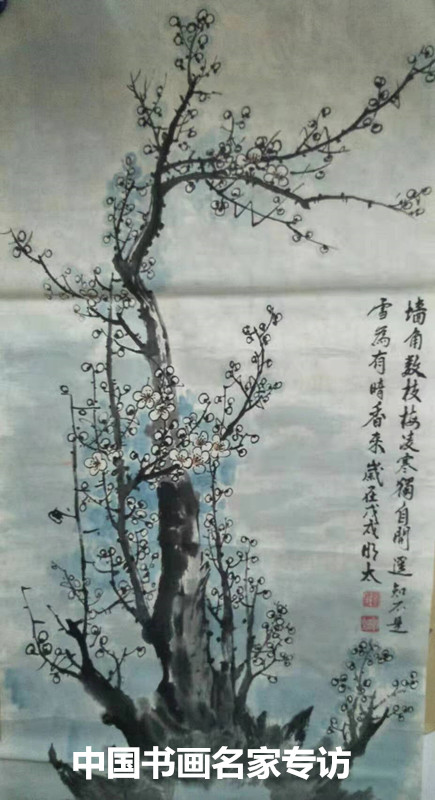 墙角数枝梅凌寒獨自開遥知不是
雪為有暗香来歲在戊戌
中国书画名家专访